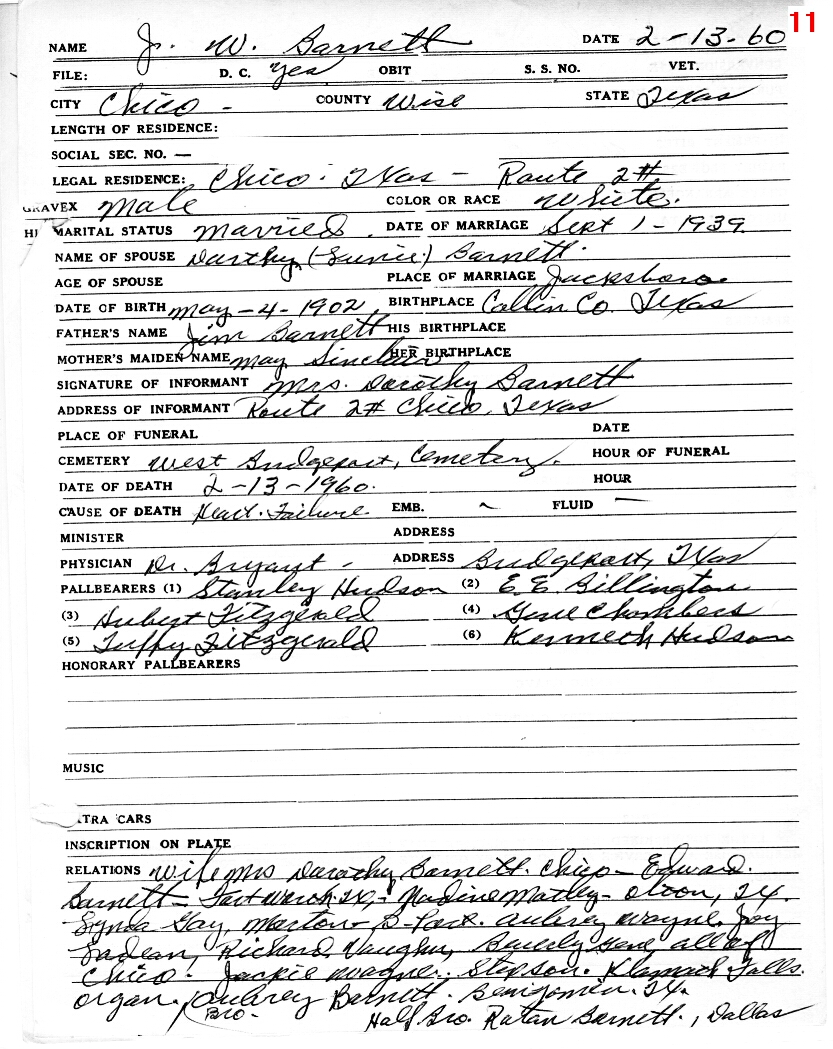 11
NAME J. W. Barnett DATE 2-13-60
FILE: D. C. Yes OBIT S. S. NO. VET.
CITY Chico - COUNTY Wise STATE Texas
LENGTH OF RESIDENCE:
SOCIAL SEC. NO. —
LEGAL RESIDENCE: Chico. Txas - Route 2#
GRAVEX Male COLOR OR RACE White.
HI MARITAL STATUS Married. DATE OF MARRIAGE Sept 1 - 1939
NAME OF SPOUSE Barnett.
AGE OF SPOUSE PLACE OF MARRIAGE Jacksboro
DATE OF BIRTH May - 4 - 1902 BIRTHPLACE Collin Co. Texas
FATHER'S NAME Jim Barnett HIS BIRTHPLACE
MOTHER'S MAIDEN NAME May Sinclair HER BIRTHPLACE
SIGNATURE OF INFORMANT Mrs. Dorothy Barnett
ADDRESS OF INFORMANT Route 2# Chico, Texas
PLACE OF FUNERAL DATE
CEMETERY West Bridgeport, Cemetery. HOUR OF FUNERAL
DATE OF DEATH 2-13-1960. HOUR
CAUSE OF DEATH Heart. Failure. EMB. ~ FLUID —
MINISTER ADDRESS
PHYSICIAN Dr. Bryant - ADDRESS Bridgeport, Txas
PALLBEARERS (1) Stanley Hudson (2) E. E. Billington
(3) Hubert Fitzgerald (4) Gene Chambers
(5) Tuffy Fitzgerald (6) Kenneth Hudson
HONORARY PALLBEARERS
MUSIC
TRA CARS
INSCRIPTION ON PLATE
RELATIONS Wife Mrs Dorothy Barnett. Chico - Edward.
Barnett - Fort Worth. Tx, - Nadine Matley - Olton, Tx.
Lynda Gay, Morton B-Port. Aubrey Wayne. Joy
Richard, Vaughn, Beverly Gene all of
Chico. Jackie Wayne. Stepson. Klamath Falls.
Organ. / Aubrey Barnett. Benjamin. Tx.
Bro-
Half Bro. Ratan Barnett., Dallas